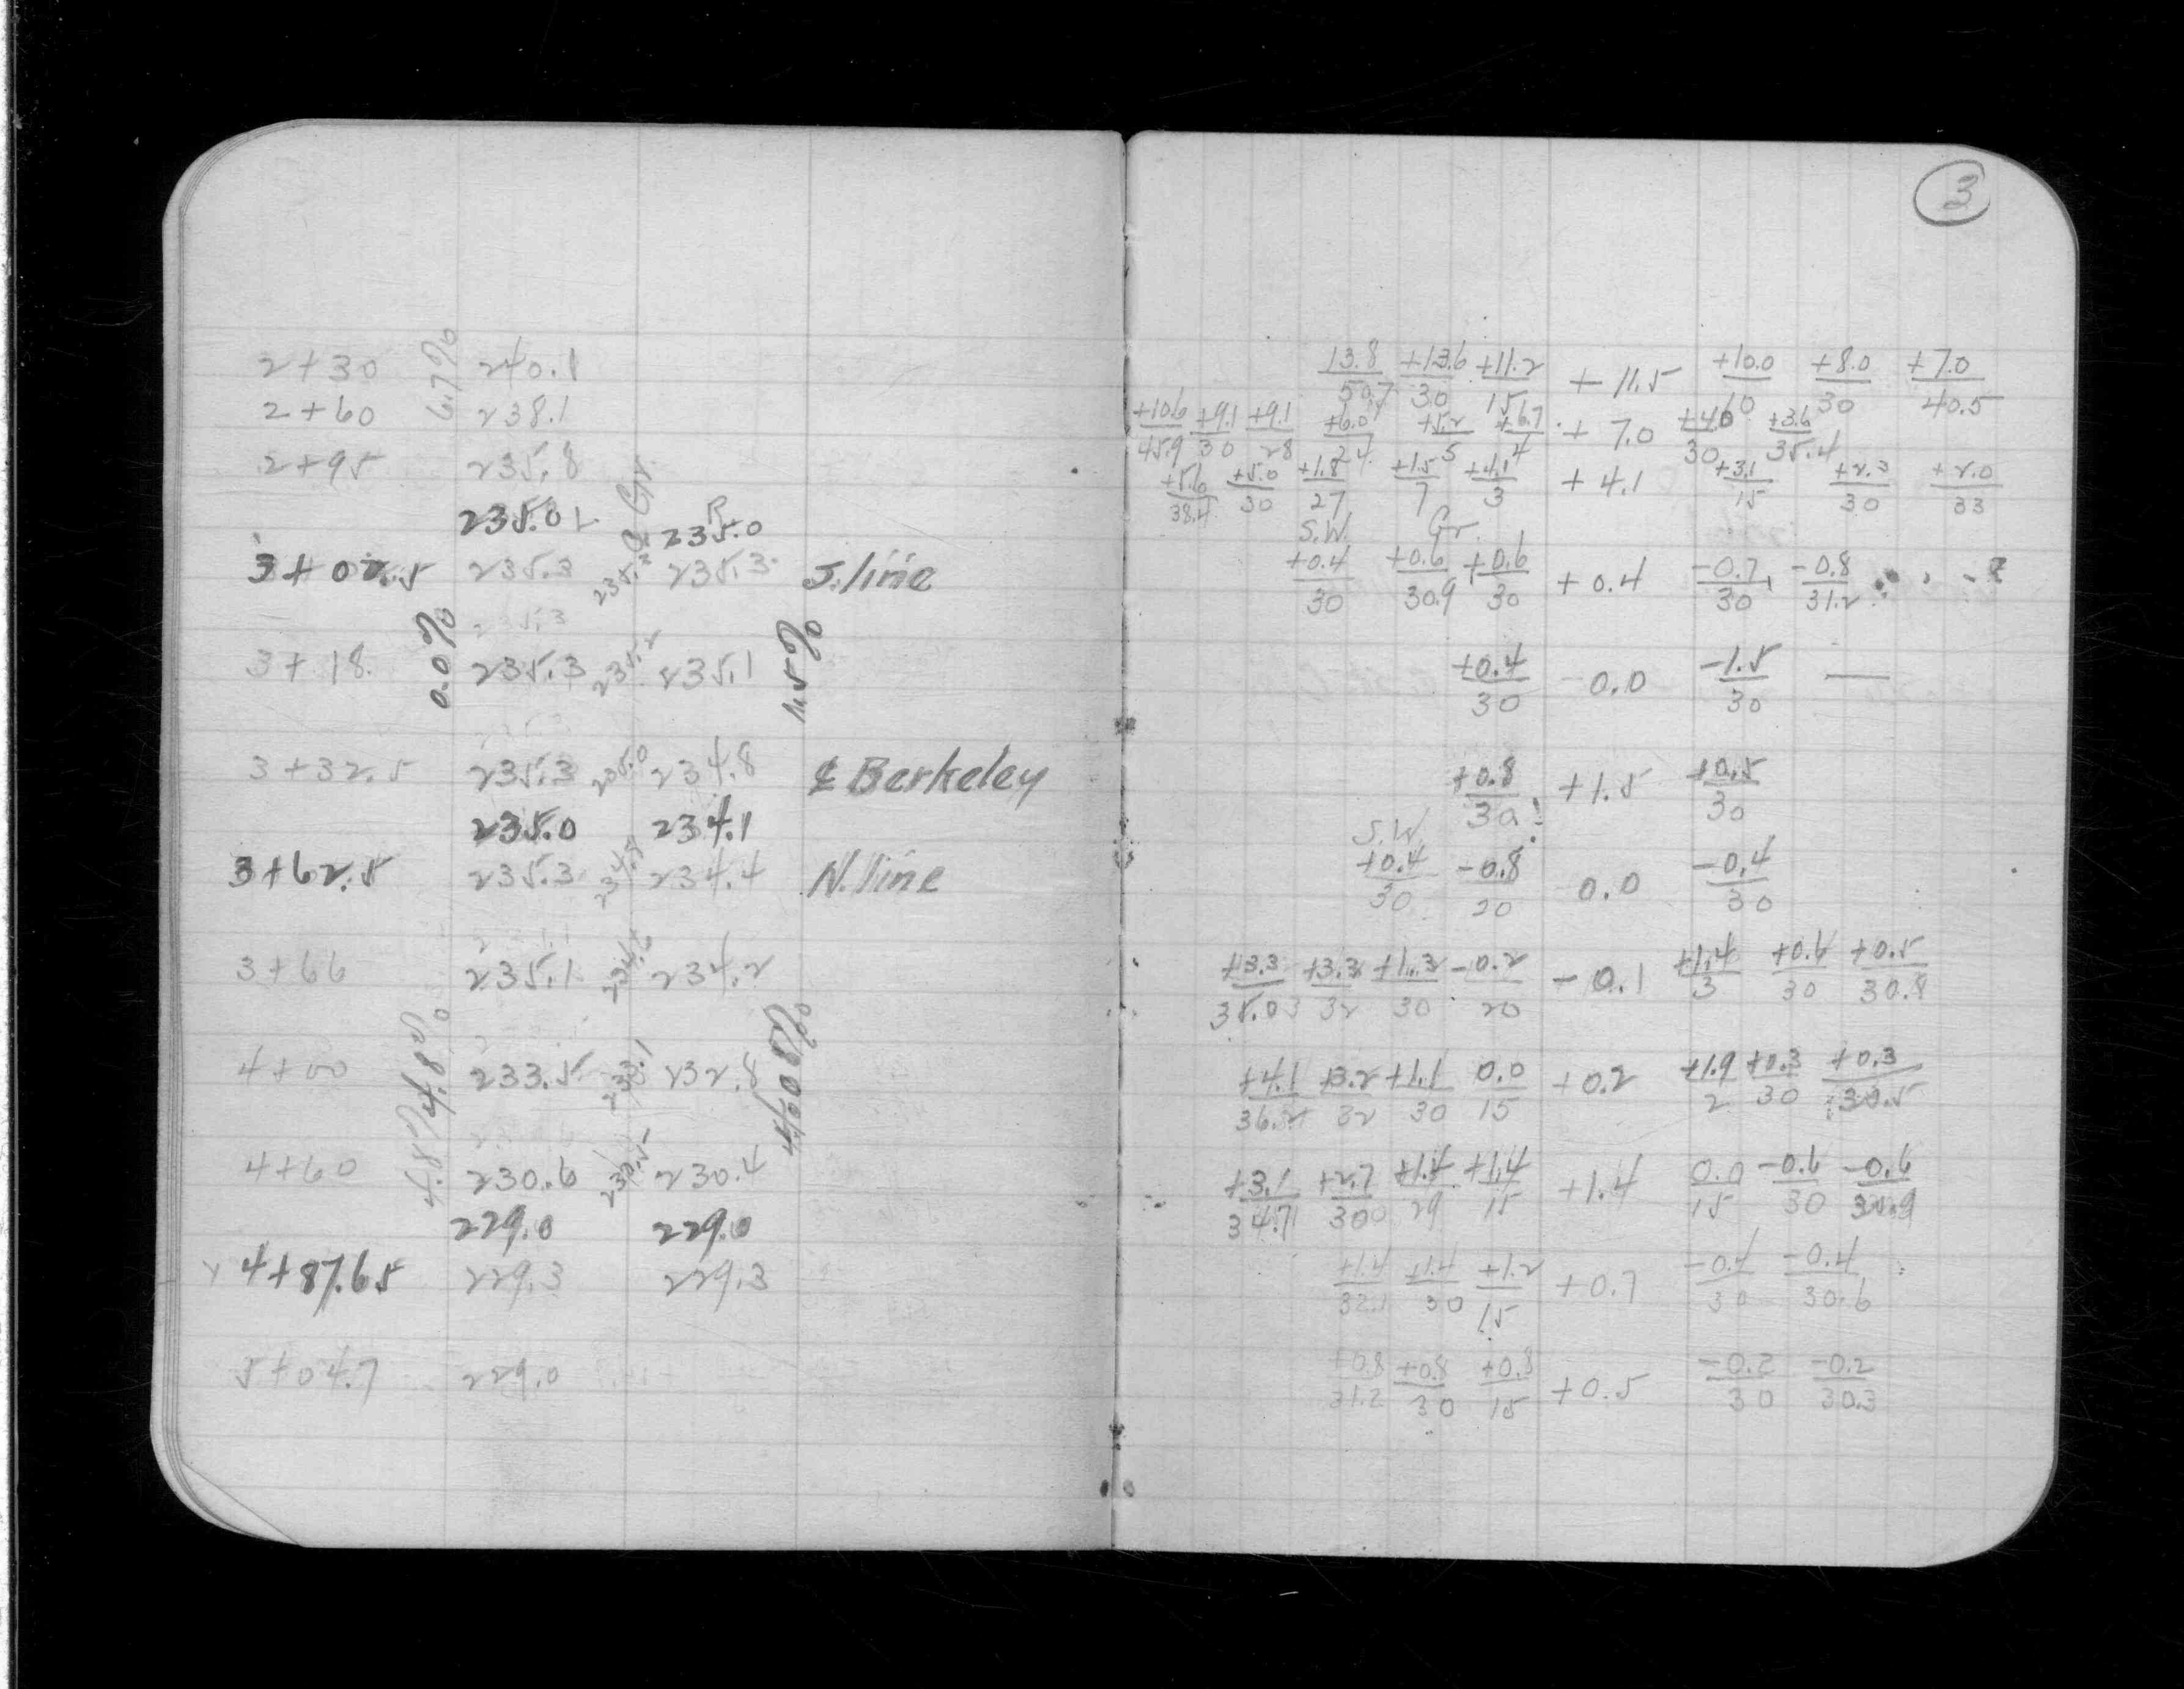 3
2+30 6.7% 240.1
2+60 238.1
2+95 235.8
235.0 L ℄ Gr. R 235.0
3+02.5 235.3 235.3 235.3 S. line
3+18 0.0% 235.3 235.2 235.1 1.5%
3+32.5 235.3 235.0 234.8 ℄ Berkeley
235.0 234.1
3+62.5 235.3 234.8 234.4 N. line
3+66 235.1 234.6 234.2
4+00 4.8% 4.8% 233.5 233.1 232.8 4.08%
4+60 230.6 230.5 230.4
229.0 229.0
4+87.65 229.3 229.3
5+04.7 229.0
13.8/50.7 +13.6/30 +11.2/15 +11.5 +10.0/10 +8.0/30 +7.0/40.5
+10.6/45.9 +9.1/30 +9.1/28 +6.0/24 +5.2/5 +6.7/4 +7.0 +4.0/30 +3.6/35.4
+5.6/38.4 +5.0/30 +1.8/27 +1.5/7 +4.1/3 +4.1 +3.1/15 +2.3/30 +2.0/33
S.W. Gr.
+0.4/30 +0.6/30.9 +0.6/30 +0.4 -0.7/30 -0.8/31.2
+0.4/30 0.0 -1.5/30 —
+0.8/30 +1.5 +0.5/30
S.W.
+0.4/30 -0.8/20 0.0 -0.4/30
+3.3/35.0 +3.3/32 +1.3/30 -0.2/20 -0.1 +1.4/3 +0.6/30 +0.5/30.8
+4.1/36.2 +3.2/32 +1.1/30 0.0/15 +0.2 +1.9/2 +0.3/30 +0.3/30.5
+3.1/34.7 +2.7/30 +1.4/29 +1.4/15 +1.4 0.0/15 -0.6/30 -0.6/30.9
+1.4/32.1 +1.4/30 +1.2/15 +0.7 -0.4/30 -0.4/30.6
+0.8/31.2 +0.8/30 +0.8/15 +0.5 -0.2/30 -0.2/30.3